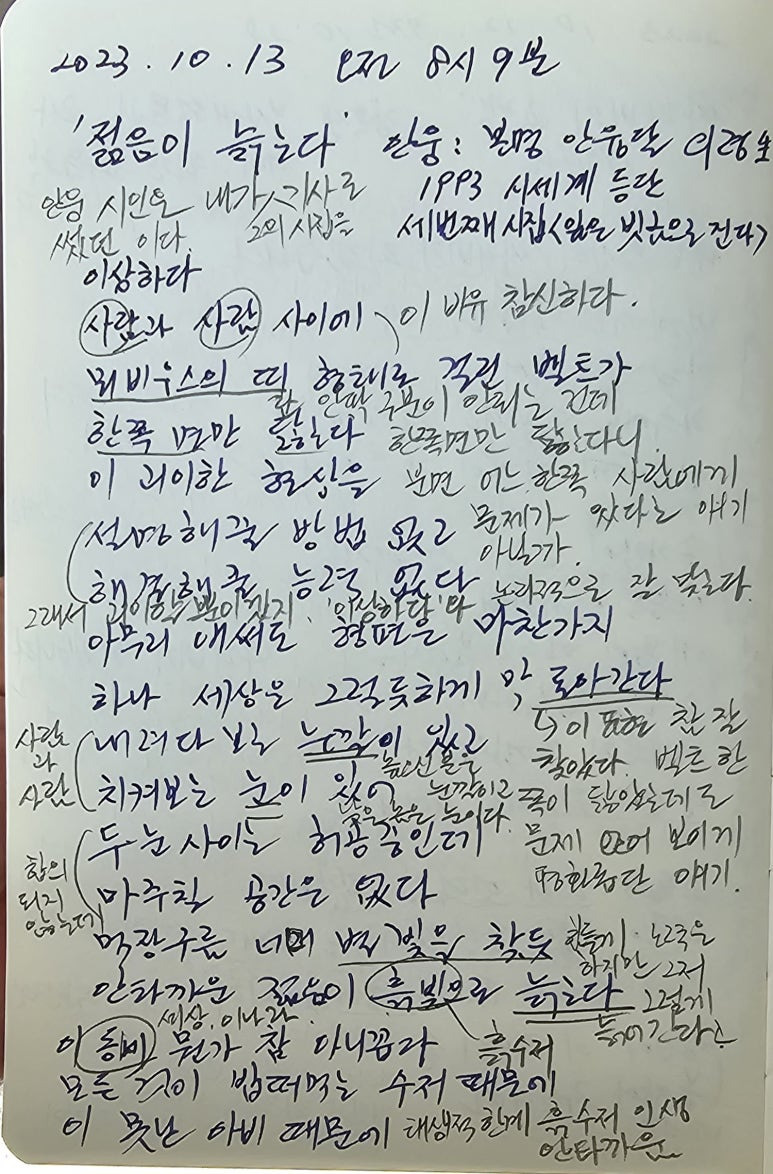 2023. 10. 13 오전 8시 9분
'젊음이 늙는다' 안웅 : 본명 안웅달 의령生
1993 시세계 등단
세번째 시집<잎은 빗금으로 진다>
안웅 시인은 내가 기사로
그의 시집을
썼던 이다.
이상하다
사람과 사람 사이에
이 비유 참신하다.
뫼비우스의 띠 형태로 걸린 벨트가
안팎 구분이 안되는 건데
한쪽 면만 닳는다
한쪽면만 닳는다니
이 괴이한 현상을
분면 어느 한쪽 사람에게
문제가 있다는 얘기
아닐까.
설명해줄 방법 없고
해결해줄 능력 없다
논리적으로 잘 맞는다.
그래서 괴이할 뿐이겠지. '이상하다'
아무리 애써도 형편은 마찬가지
하나 세상은 그럴듯하게 막 돌아간다
이 표현 참 잘
했었다. 벨트 한
쪽이 닳았는데도
문제 없어 보이게
평화롭단 얘기.
사람
과
사람
내려다 보는 눈깔이 있고
눈깔이고
치켜보는 눈이 있어
눈이다.
두 눈 사이는 허공중인데
합의
되지
않는데
마주칠 공간은 없다
먹장구름 너머 별빛을 찾듯
힘들게 노력은
하지만 그저
그렇게
늙어간다.
안타까운 젊음이 흙빛으로 늙는다
흙수저
세상, 이나라
이 뭔가 참 아니꼽다
모든 것이 밥떠먹는 수저 때문에
이 못난 아비 때문에
태생적 한계 흙수저 인생
안타까운